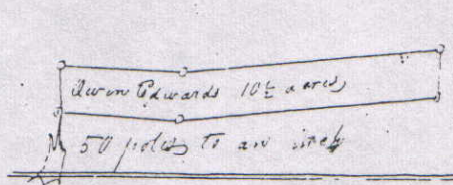 Owen Edwards 10½ acres
50 poles to an inch